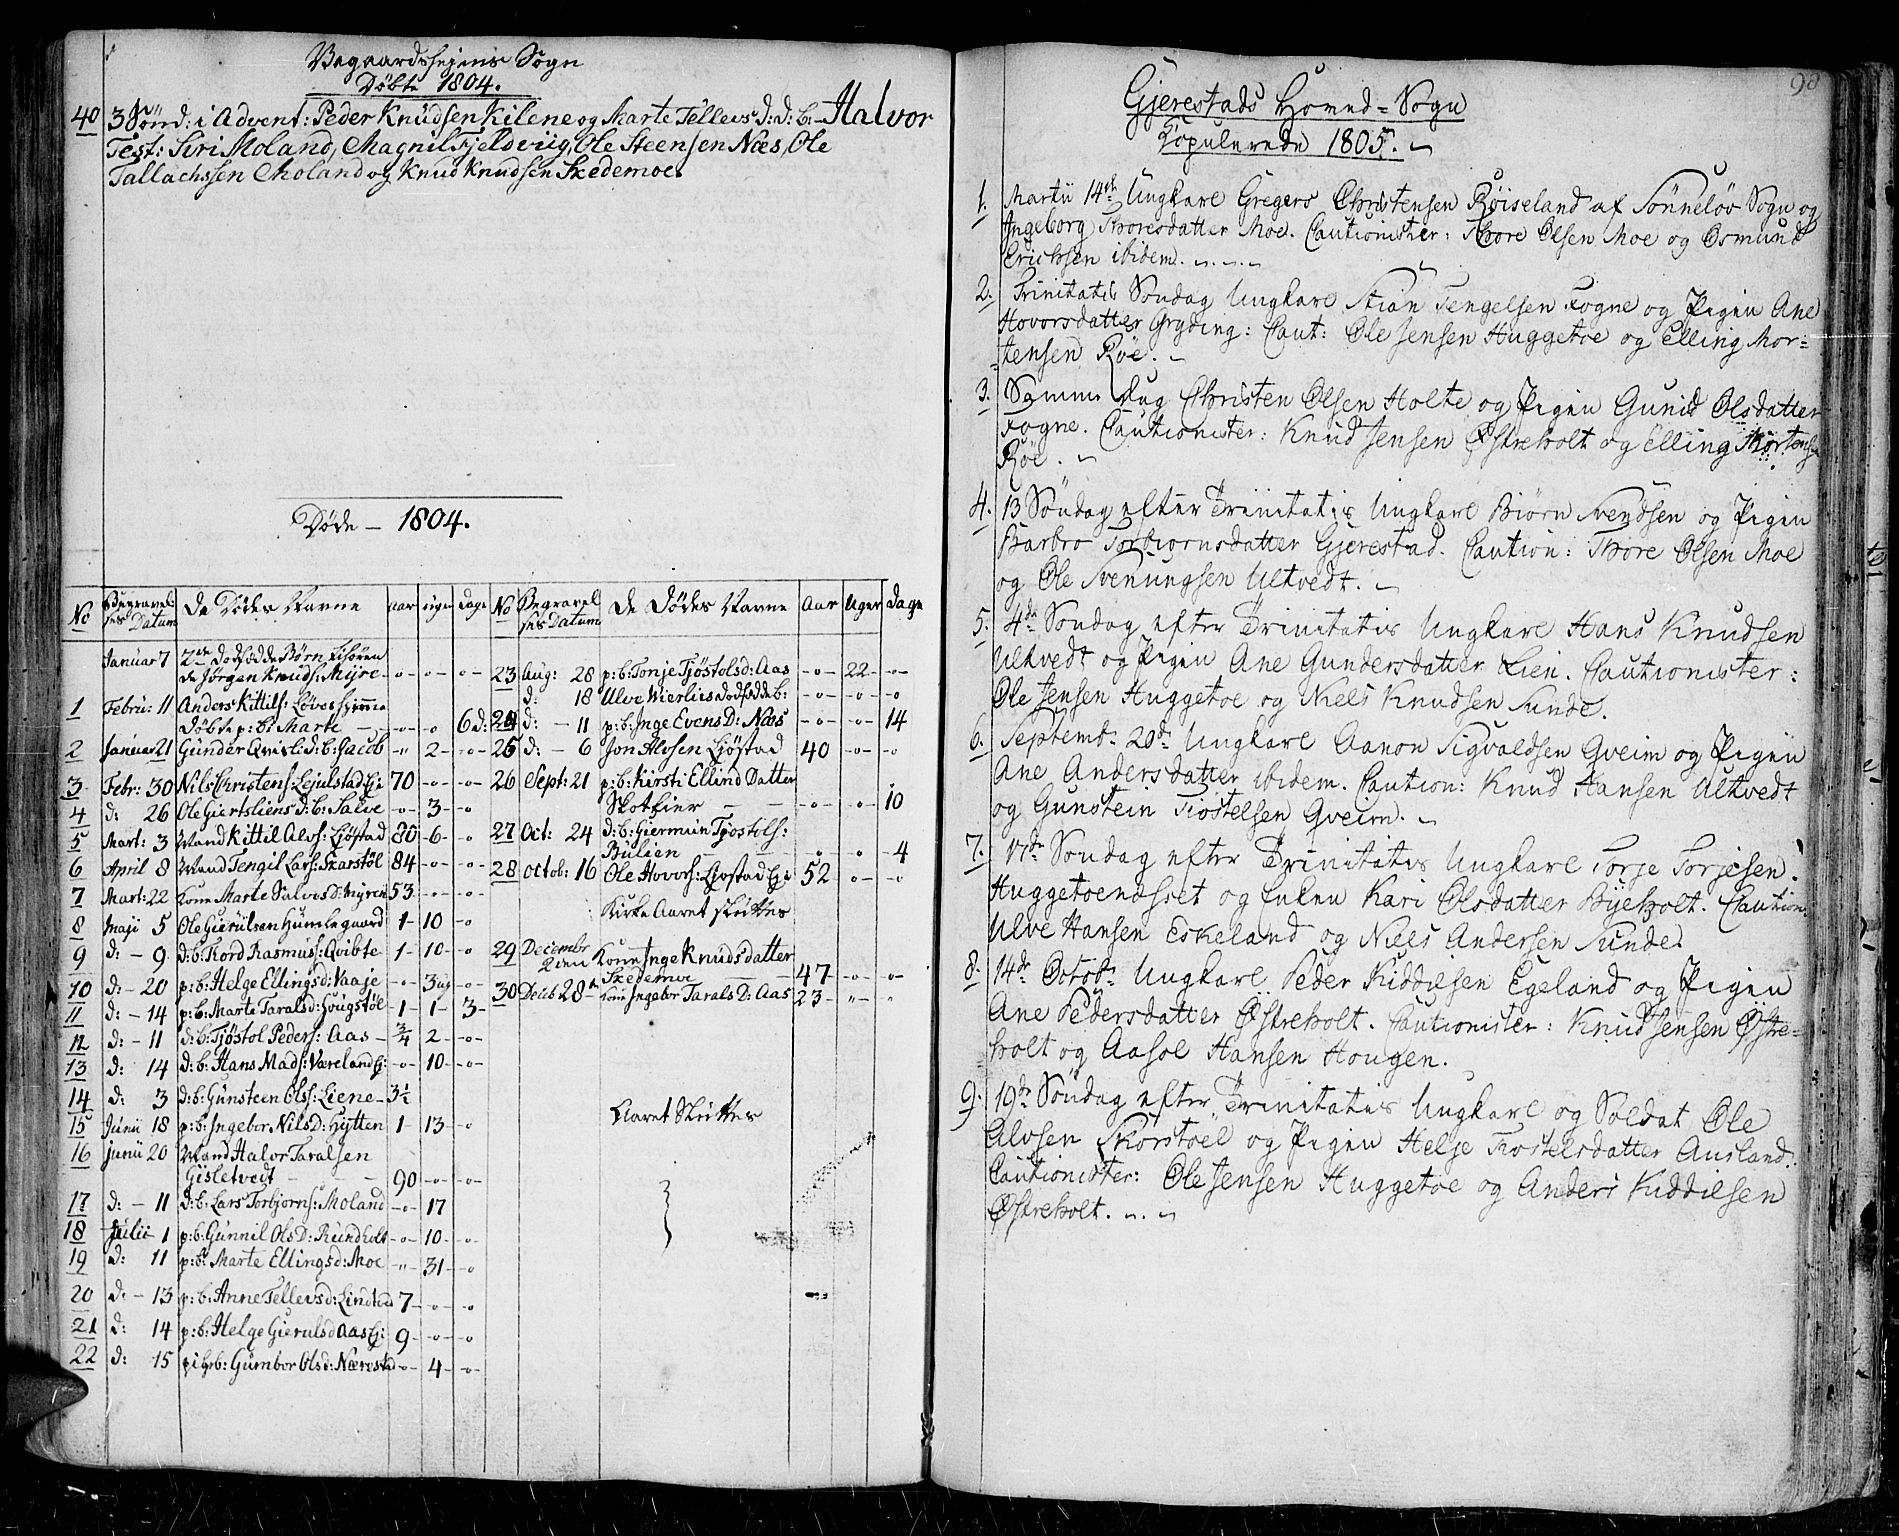 Vegaardshejens Sogn
Døbte 1804.
40 3 Sønd: i Advent: Peder Knudsen Kilene og Marte Tellevs D: d: b: Halvor
Test: Siri Moland, Magnil Fjeldviig, Ole Steensen Næs, Ole
Tallachssen Moland og Knud Knudsen Skedemoe.
Døde - 1804.
No Begravelses Datum De Dødes Navne aar uger Dage
Januar 7 2de Dødfødde Børn
Jørgen Knuds: Mÿre - o - o - o
1 Febru: 11 Anders Kittils: Løves
Døbte p: b: Marte - o - o 6 d:
2 Januar 21 Gunder d: b: Jacob " 2 - o
3 Febr: 30 Nils Christens: Lejulstad Ej: 70 - o - o
4 d: 26 Ole Giertsliens d: b: Salve - o - 3 - o
5 Mart: 3 Mand Kittil Alvs: Ljøstad 80 - 6 - o
6 April 8 Mand Tengil Lars: Skarstøl 84 - o - o
7 Mart: 22 Kone Marte Salves D: Myren 53 - o - o
8 Maji 5 Ole Gierulsen Humlegaard 1 - 10 - o
9 d: - 9 d: b: Tord Rasmus: Qvibte 1 - 10 - o
10 d: - 20 p: b: Helge Ellings d: Vaaje - o - 3 ug - o
11 d: - 14 p: b: Marte Tarals d: Hougstøl 1 - 1 - 3
12 d: - 11 d: b: Tjøstol Peders: Aas - 3/4 2 - o
13 d: 14 d: b: Hans Mads: Væreland Ej: - o - 10 - o
14 d: 3 d: b: Gunsteen Ols: Liene - 3 1/2
15 Junii 18 p: b: Ingebor Nils D: Hytten 1 - 13 - o
16 Junii 20 Mand Halvor Taralsen
Gisletvedt - 90 - o - o
17 d: - 11 d: b: Lars Torbjorns: Moland - o - 17
18 Julii - 1 p: b: Gunnil Ols D: Rundholt - o - 10 - o
19 d: 11 p: b: Marte Ellings d: Moe - " - 31 - o
20 d: - 13 p: b: Anne Tellevs d: Lindtved 7 - o - o
21 d: 14 p: b: Helge Gieruls d Aas Ej: 9 - o - o
22 d: 15 Gumbor Ols d: Nærestad - o - 4 - o
No Begravelses Datum De Dødes Navne Aar Uger Dage
23 Aug: 28 p: b: Tonje Tjøstols d: Aas - o - 22 - o
d: 18 Ulve Vierlies dødfødde b: - o - o - o
24 d: - 11 p: b: Inge Evens D: Næs - o - o - 14
25 d: - 6 Jon Alvsen Ljøstad 40 - o - o
26 Sept: 21 p: b: Kirsti Ellind Datter
Skotfier - - - o - o - 10
27 Oct: 24 d: b: Giermun Tjøstols:
Bulien - - o - o - 4
28 Octob: 16 Ole Hovors: Ljøstad Ej: 52 - o - o
Kirke Aaret sluttes
29 Decembr 2den Kone Inge Knudsdatter
Skedemoe - - 47 - o - o
30 Deceb 28de Kone Ingebor Tarals D: Aas 23 - " - "
Aaret Sluttes
98
Gjerestads Hoved-Sogn
Kopulerede 1805.
1. Martii 14de Ungkarl Gregers Christensen Røiseland af Sønneløv Sogn og
Ingeborg Thoresdatter Moe. Cautionister: Thore Olsen Moe og Osmund
Erichsen ibidem.
2. Trinitatis Søndag Ungkarl Stian Tengelsen Fogne og Pigen Ane
Hovorsdatter Gryding: Caut: Ole Jensen Huggetoe og Elling Mor-
tensen Røe.
3. Samme Dag Christen Olsen Holte og Pigen Gunild Olsdatter
Fogne. Cautionister: Knud Jensen Østreholt og Elling Mortensen
Røe.
4. 13 Søndag efter Trinitatis Ungkarl Biørn Svendsen og Pigen
Barbro Torbiornsdatter Gjerestad. Caution: Thore Olsen Moe
og Ole Svenungsen Ultvedt.
5. 4de Søndag efter Trinitatis Ungkarl Hans Knudsen
Ultvedt og Pigen Ane Gundersdatter Lien. Cautionister:
Ole Jensen Huggetoe og Niels Knudsen Sunde.
6. Septembr 20de Ungkarl Aanon Sigvaldsen Gveim og Pigen
Ane Andersdatter ibidem. Caution: Knud Hansen Ultvedt
og Gunstein Tiostelsen Gveim.
7. 17de Søndag efter Trinitatis Ungkarl Torje Torjesen
Huggetoenæsset og Enken Kari Olsdatter Byeholt. Caution:
Ulve Hansen Eskeland og Niels Andersen Sunde.
8. 14de Octobr Ungkarl Peder Kiddilsen Egeland og Pigen
Ane Pedersdatter Østreholt. Cautionister: Knud Jensen Østre-
holt og Aasol Hansen Hougen.
9. 19de Søndag efter Trinitatis Ungkarl og Soldat Ole
Alvsen Skorstøel og Pigen Helje Tiostelsdatter Ausland.
Cautionister: Ole Jensen Huggetoe og Anders Kiddilsen
Østreholt.